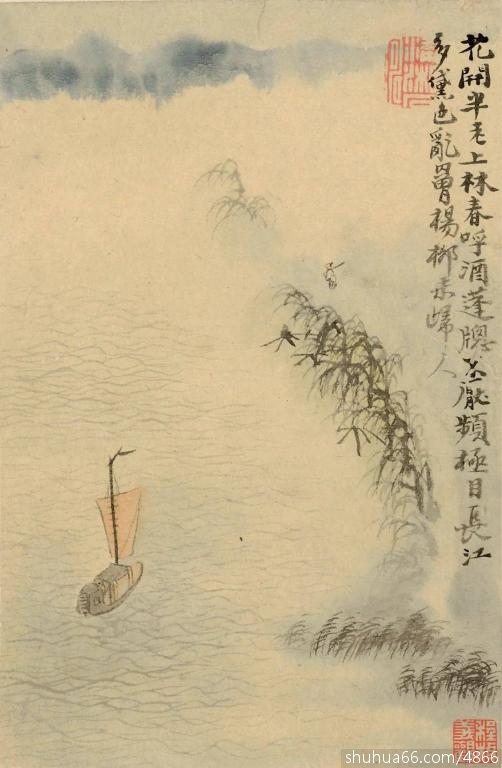 花開半老上林春呼酒蓬牕不厭頻極目長江
多黛色亂罥楊柳未歸人
shuhua66.com/4866